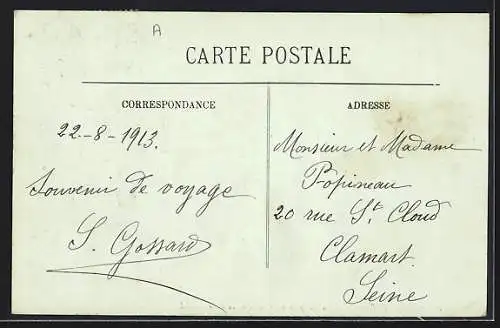 A
CARTE POSTALE
CORRESPONDANCE
ADRESSE
22-8-1913.
Souvenir de voyage
S. Gossard
Monsieur et Madame
Popineau
20 rue St. Cloud
Clamart.
Seine